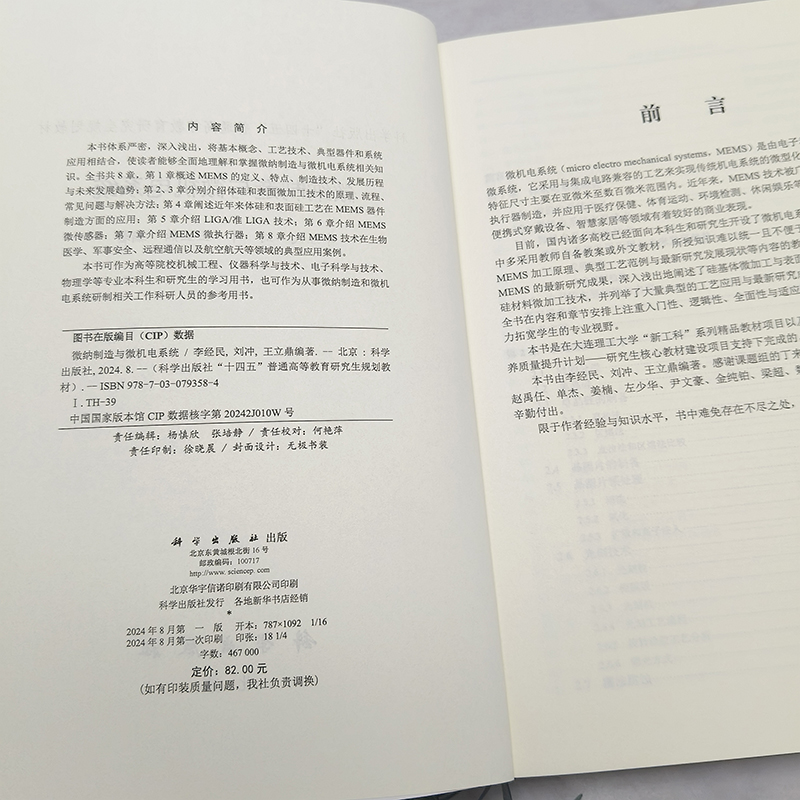 内 容 简 介
本书体系严密，深入浅出，将基本概念、工艺技术、典型器件和系统
应用相结合，使读者能够全面地理解和掌握微纳制造与微机电系统相关知
识。全书共 8 章，第 1 章概述 MEMS 的定义、特点、制造技术、发展历程
与未来发展趋势；第 2、3 章分别介绍体硅和表面微加工技术的原理、流程、
常见问题与解决方法；第 4 章阐述近年来体硅和表面硅工艺在 MEMS 器件
制造方面的应用；第 5 章介绍 LIGA/准 LIGA 技术；第 6 章介绍 MEMS
微传感器；第 7 章介绍 MEMS 微执行器；第 8 章介绍 MEMS 技术在生物
医学、军事安全、远程通信以及航空航天等领域的典型应用案例。
本书可作为高等院校机械工程、仪器科学与技术、电子科学与技术、
物理学等专业本科生和研究生的学习用书，也可作为从事微纳制造和微机
电系统研制相关工作科研人员的参考用书。
图书在版编目（CIP）数据
微纳制造与微机电系统 / 李经民，刘冲，王立鼎编著. -- 北京：科学
出版社, 2024. 8. --（科学出版社“十四五”普通高等教育研究生规划教
材）. -- ISBN 978-7-03-079358-4
Ⅰ. TH-39
中国国家版本馆 CIP 数据核字第 20242J010W 号
责任编辑：杨慎欣 张培静 / 责任校对：何艳萍
责任印制：徐晓晨 / 封面设计：无极书装
科学出版社 出版
北京东黄城根北街 16 号
邮政编码：100717
http://www. sciencep. com
北京华宇信诺印刷有限公司印刷
科学出版社发行 各地新华书店经销
*
2024 年 8 月第 一 版 开本：787×1092 1/16
2024 年 8 月第一次印刷 印张：18 1/4
字数：467 000
定价：82.00 元
（如有印装质量问题，我社负责调换）
前 言
微机电系统（micro electro mechanical systems，MEMS）是由电子
微系统，它采用与集成电路兼容的工艺来实现传统机电系统的微型化
特征尺寸主要在亚微米至数百微米范围内。近年来，MEMS 技术被广
执行器制造，并应用于医疗保健、体育运动、环境检测、休闲娱乐等
便携式穿戴设备、智慧家居等领域有着较好的商业表现。
目前，国内诸多高校已经面向本科生和研究生开设了微机电系
中多采用教师自备教案或外文教材，所授知识难以统一且不便于
MEMS 加工原理、典型工艺范例与最新研究发展现状等内容的教
MEMS 的最新研究成果，深入浅出地阐述了硅基体微加工与表面
硅材料微加工技术，并列举了大量典型的工艺应用与最新研究
全书在内容和章节安排上注重入门性、逻辑性、全面性与适应
力拓宽学生的专业视野。
本书是在大连理工大学“新工科”系列精品教材项目以及
养质量提升计划——研究生核心教材建设项目支持下完成的。
本书由李经民、刘冲、王立鼎编著。感谢课题组的丁来
赵禹任、单杰、姜楠、左少华、尹文豪、金纯铂、梁超、
辛勤付出。
限于作者经验与知识水平，书中难免存在不尽之处，